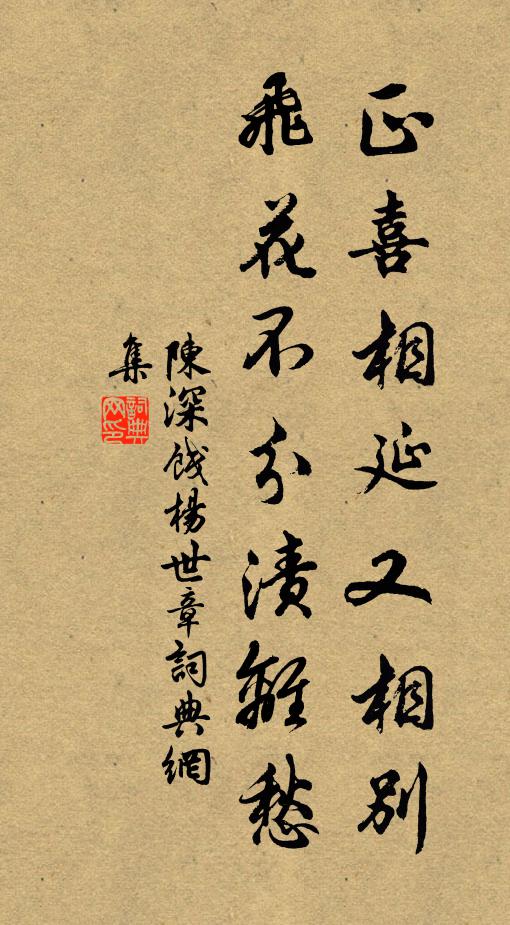 正喜相延又相別
飛花不分漬離愁
陳深餞楊世章詞典網
集
詞典
网印